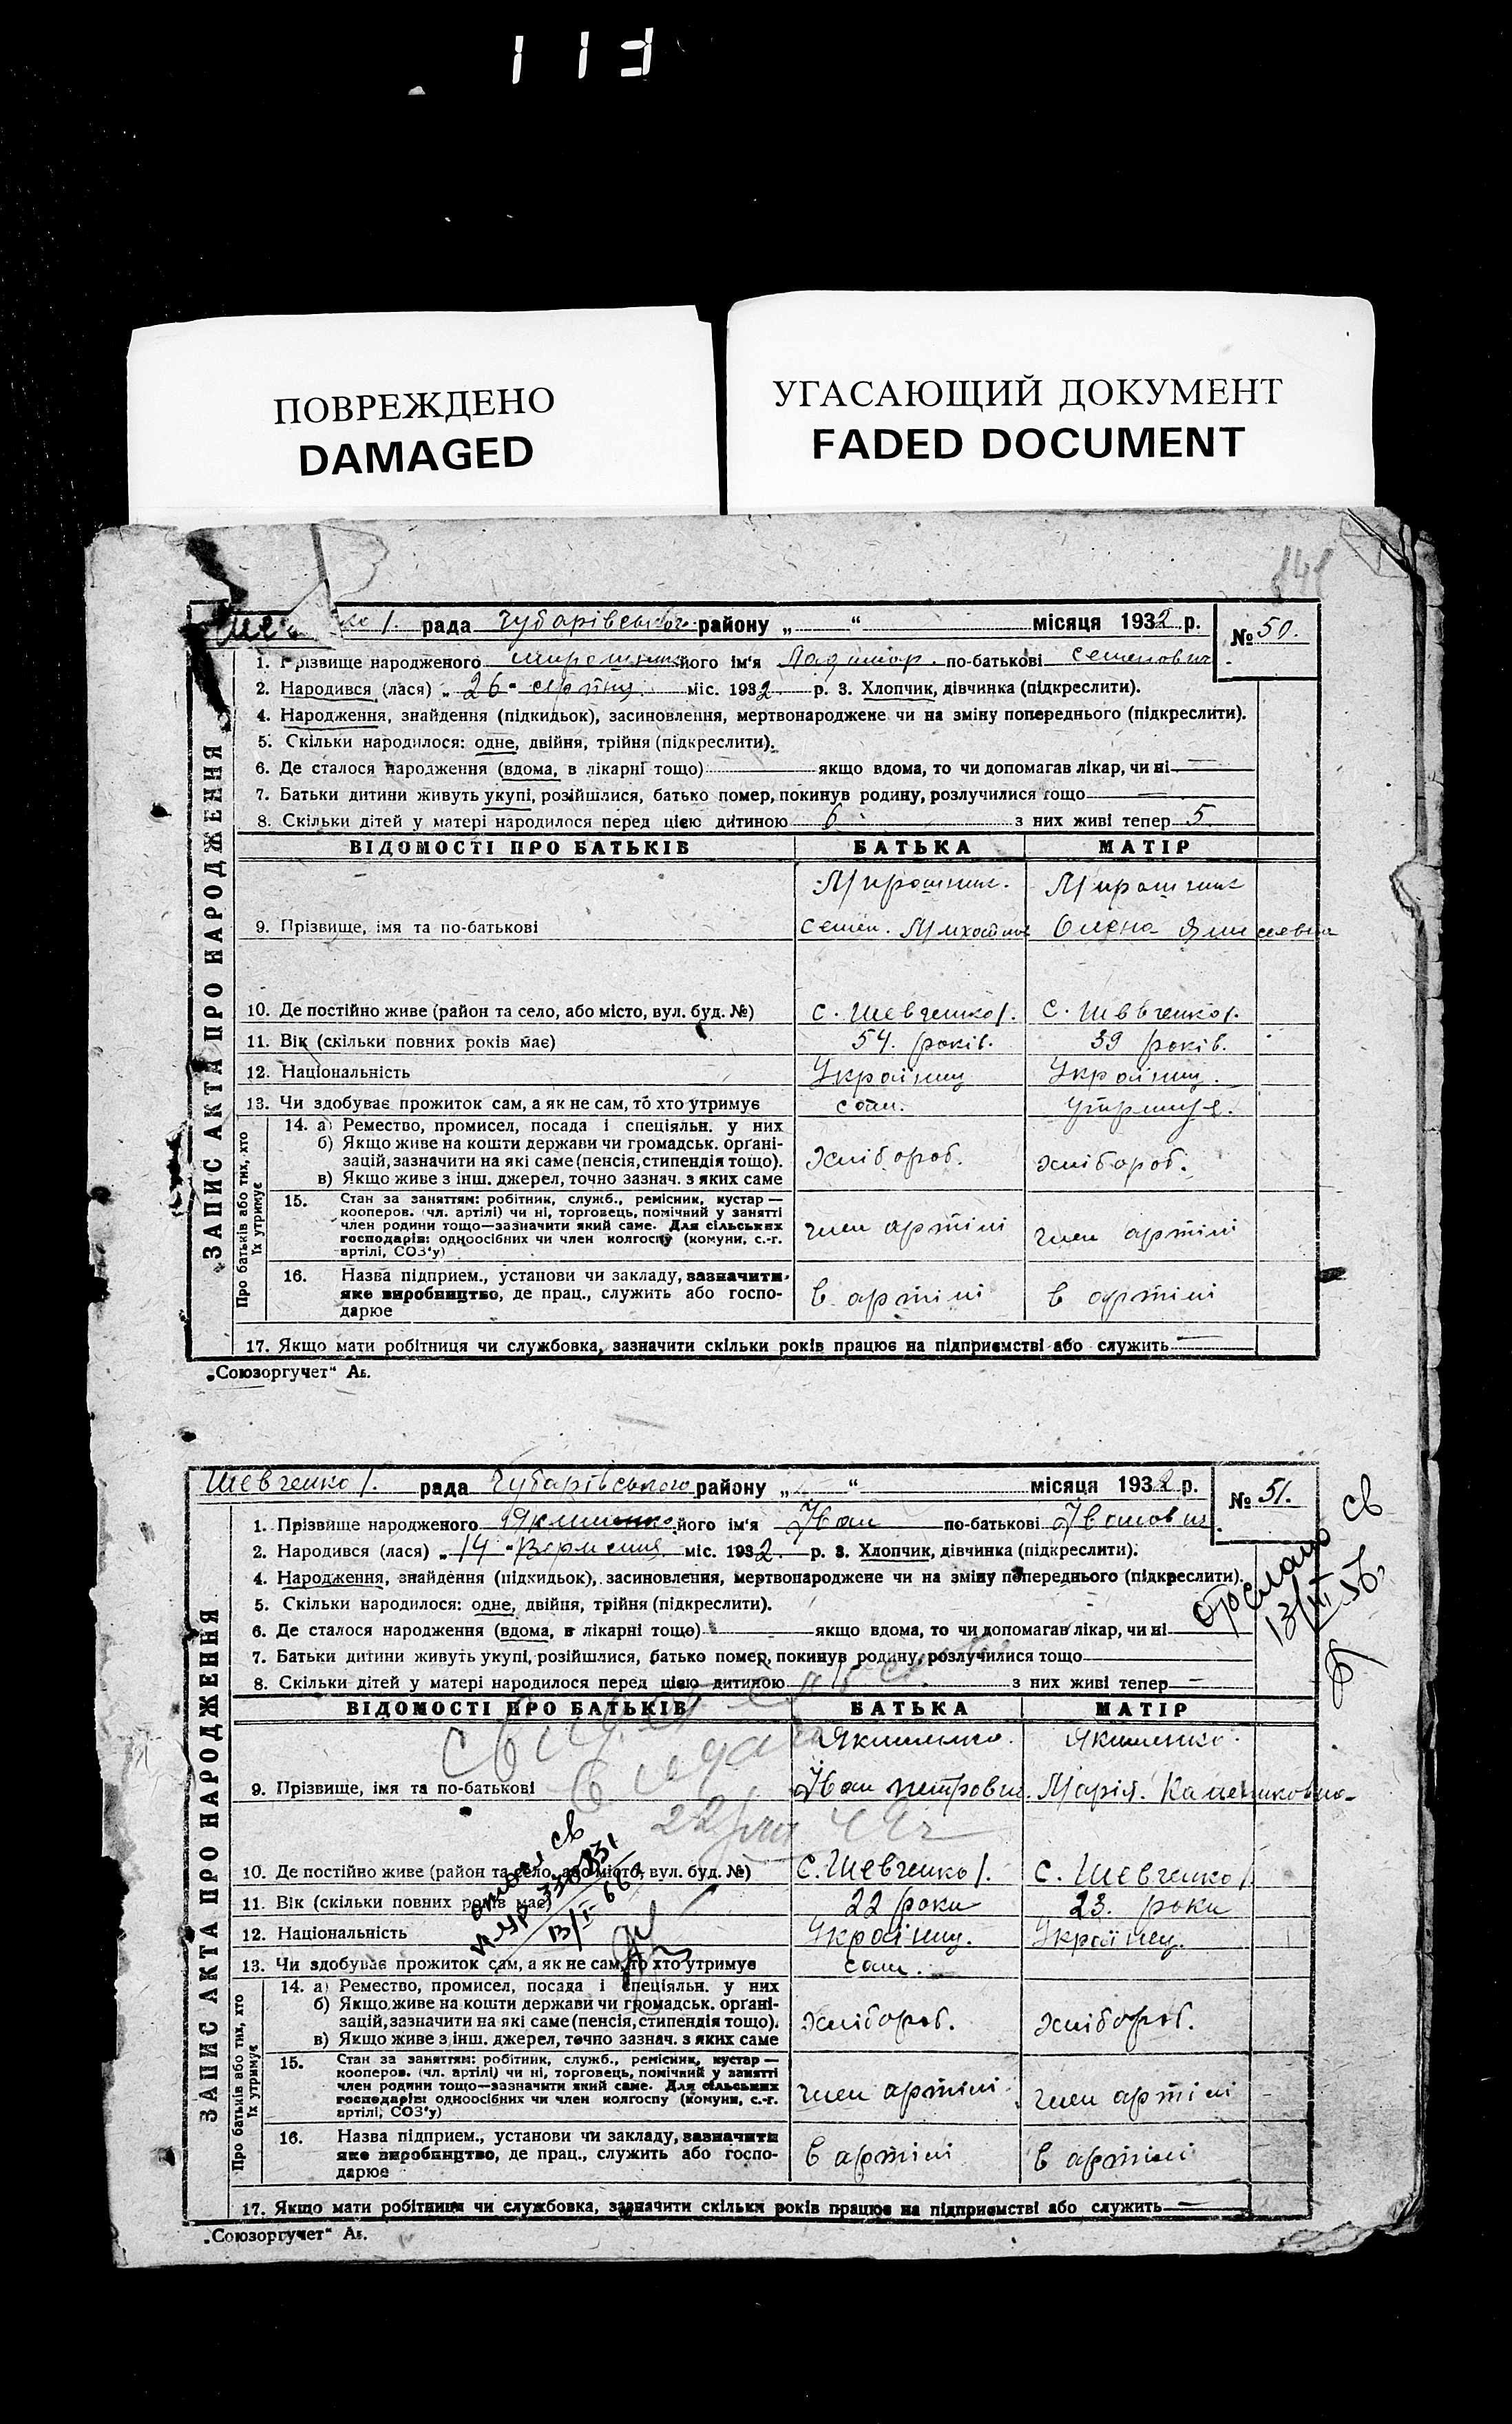 113
ПОВРЕЖДЕНО
DAMAGED
УГАСАЮЩИЙ ДОКУМЕНТ
FADED DOCUMENT
141
рада Чубарівського району „ “ місяця 1932 р.
№ 50.
1. Прізвище народженого Мирошник його ім'я по-батькові Семенович
2. Народився (лася) „ 26 “ серпня міс. 1932 р. 3. Хлопчик, дівчинка (підкреслити).
4. Народження, знайдення (підкидьок), засиновлення, мертвонароджене чи на зміну попереднього (підкреслити).
5. Скільки народилося: одне, двійня, трійня (підкреслити).
6. Де сталося народження (вдома, в лікарні тощо) якщо вдома, то чи допомагав лікар, чи ні —
7. Батьки дитини живуть укупі, розійшлися, батько помер, покинув родину, розлучилися тощо —
8. Скільки дітей у матері народилося перед цією дитиною 6 з них живі тепер 5
ЗАПИС АКТА ПРО НАРОДЖЕННЯ
ВІДОМОСТІ ПРО БАТЬКІВ БАТЬКА МАТІР
Мирошник. Мирошник
9. Прізвище, імя та по-батькові Семен. Олена
10. Де постійно живе (район та село, або місто, вул. буд. №) с. Шевченко I. с. Шевченко I.
11. Вік (скільки повних років має) 54. років. 39 років.
12. Національність Українец Українец.
13. Чи здобуває прожиток сам, а як не сам, то хто утримує сам.
Про батьків або тих, хто їх утримує
14. а) Ремество, промисел, посада і спеціяльн. у них
б) Якщо живе на кошти держави чи громадськ. орґані-
зацій, зазначити на які саме (пенсія, стипендія тощо). хлібороб. хлібороб.
в) Якщо живе з інш. джерел, точно зазнач. з яких саме
15. Стан за заняттям: робітник, служб., ремісник, кустар —
кооперов. (чл. артілі) чи ні, торговець, помічний у занятті
член родини тощо—зазначити який саме. Для сільських член артілі член артілі
господарів: одноосібних чи член колгоспу (комуни, с.-г.
артілі, СОЗ'у)
16. Назва підприєм., установи чи закладу, зазначити,
яке виробництво, де прац., служить або госпо- в артілі в артілі
дарює
17. Якщо мати робітниця чи службовка, зазначити скільки років працює на підприємстві або служить —
„Союзоргучет“ Аб.
Шевченко I. рада Чубарівського району „ “ місяця 1932 р.
№ 51.
1. Прізвище народженого Якименко його ім'я Іван по-батькові Іванович
2. Народився (лася) „ 14 “ Вересня міс. 1932 р. 3. Хлопчик, дівчинка (підкреслити).
4. Народження, знайдення (підкидьок), засиновлення, мертвонароджене чи на зміну попереднього (підкреслити).
5. Скільки народилося: одне, двійня, трійня (підкреслити).
6. Де сталося народження (вдома, в лікарні тощо) якщо вдома, то чи допомагав лікар, чи ні
7. Батьки дитини живуть укупі, розійшлися, батько помер, покинув родину, розлучилися тощо
8. Скільки дітей у матері народилося перед цією дитиною з них живі тепер —
ЗАПИС АКТА ПРО НАРОДЖЕННЯ
ВІДОМОСТІ ПРО БАТЬКІВ БАТЬКА МАТІР
Якименко. Якименко.
9. Прізвище, імя та по-батькові Іван петрович. Марія.
10. Де постійно живе (район та село, або місто, вул. буд. №) С. Шевченко I. с. Шевченко I.
11. Вік (скільки повних років має) 22 роки 23. роки
12. Національність Українец. Українец.
13. Чи здобуває прожиток сам, а як не сам, то хто утримує сам.
Про батьків або тих, хто їх утримує
14. а) Ремество, промисел, посада і спеціяльн. у них
б) Якщо живе на кошти держави чи громадськ. орґані-
зацій, зазначити на які саме (пенсія, стипендія тощо). хлібороб. хлібороб.
в) Якщо живе з інш. джерел, точно зазнач. з яких саме
15. Стан за заняттям: робітник, служб., ремісник, кустар —
кооперов. (чл. артілі) чи ні, торговець, помічний у занятті
член родини тощо—зазначити який саме. Для сільських член артілі. член артілі
господарів: одноосібних чи член колгоспу (комуни, с.-г.
артілі, СОЗ'у)
16. Назва підприєм., установи чи закладу, зазначити
яке виробництво, де прац., служить або госпо- в артілі в артілі
дарює
17. Якщо мати робітниця чи службовка, зазначити скільки років працює на підприємстві або служить —
„Союзоргучет“ Аб.